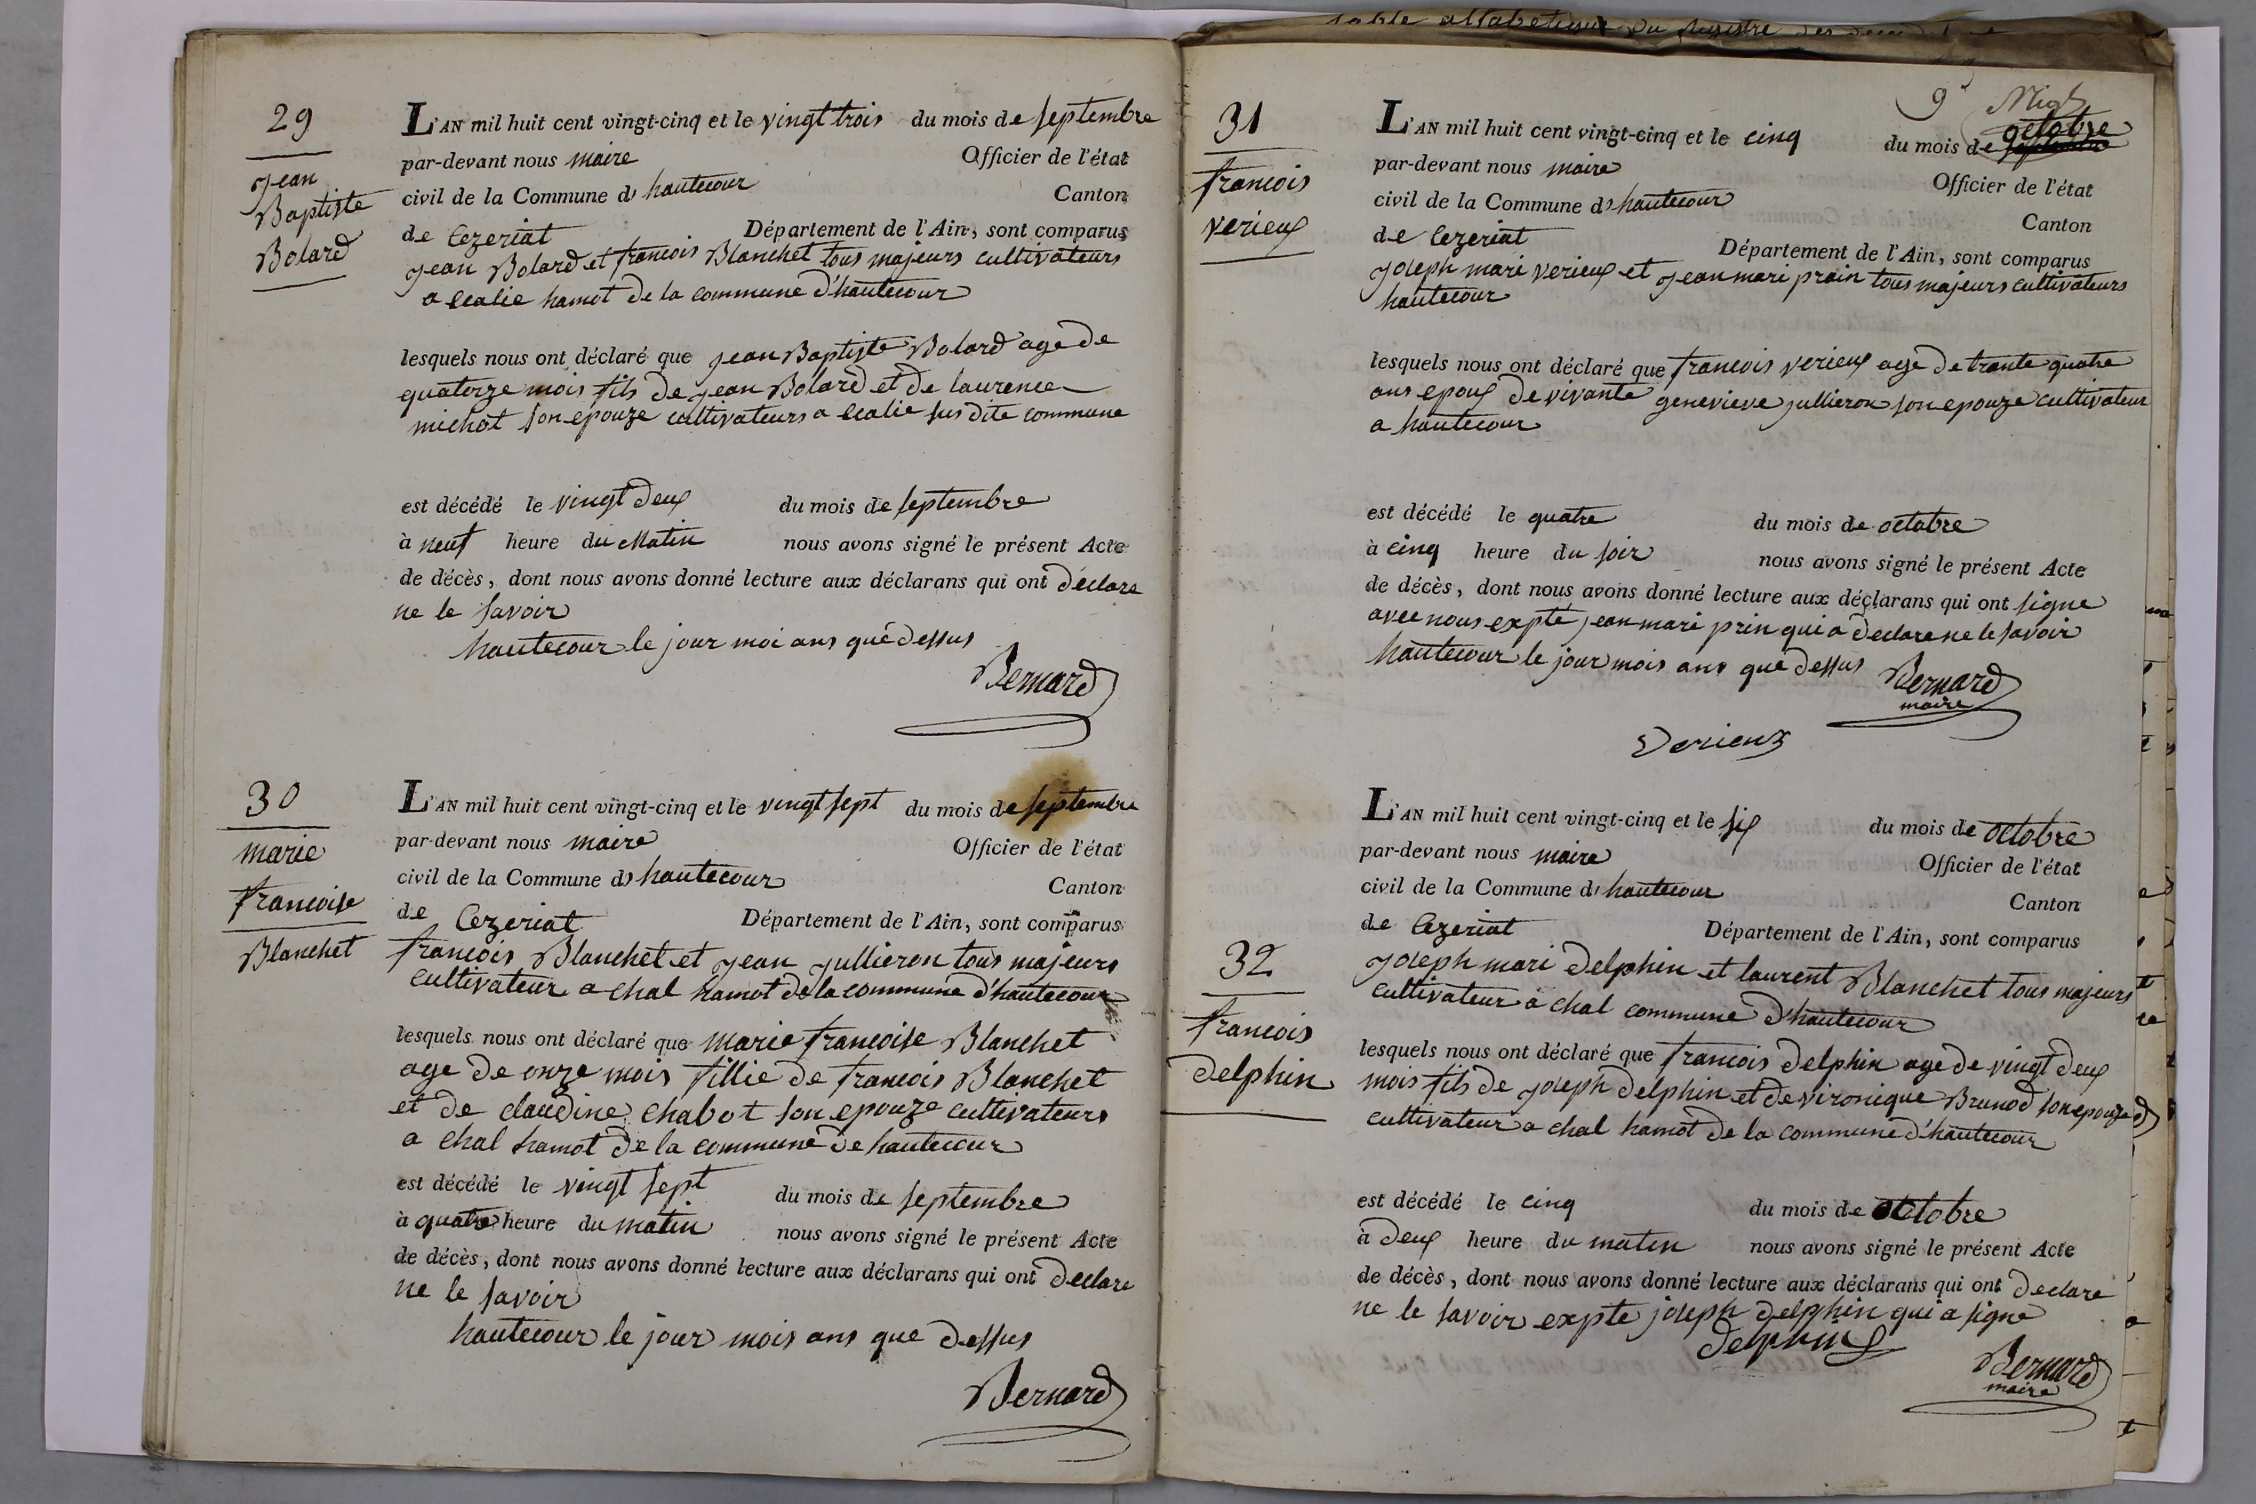 29
Jean
Baptiste
Bolard
L'AN mil huit cent vingt-cinq et le vingt trois du mois de septembre
par-devant nous maire Officier de l'état
civil de la Commune d hautecour Canton
de Cezeriat Département de l'Ain, sont comparus
Jean Bolard et francois Blanchet tous majeurs cultivateurs
a ecalie hamot de la commune d'hautecour
lesquels nous ont déclaré que jean Baptiste Bolard age de
quatorze mois fils de jean Bolard et de laurence
michot son epouze cultivateurs a ecalie sus dite commune
est décédé le vingt deux du mois de septembre
à neuf heure du Matin nous avons signé le présent Acte
de décès, dont nous avons donné lecture aux déclarans qui ont declare
ne le savoir
hautecour le jour moi ans que dessus
Bernard
30
marie
francoise
Blanchet
L'AN mil huit cent vingt-cinq et le vingt sept du mois de septembre
par-devant nous maire Officier de l'état
civil de la Commune d hautecour Canton
de Cezeriat Département de l'Ain, sont comparus
francois Blanchet et jean jullieron tous majeurs
cultivateur a chal hamot de la commune d'hautecour
lesquels nous ont déclaré que marie francoise Blanchet
age de onze mois fillie de francois Blanchet
et de claudine chabot son epouze cultivateurs
a chal hamot de la commune de hautecour
est décédé le vingt sept du mois de septembre
à quatre heure du matin nous avons signé le présent Acte
de décès, dont nous avons donné lecture aux déclarans qui ont declare
ne le savoir
hautecour le jour mois ans que dessus
Bernard
table alfabetique du registre des
9
31
francois
verieux
L'AN mil huit cent vingt-cinq et le cinq du mois de octobre septembre
par-devant nous maire Officier de l'état
civil de la Commune d hautecour Canton
de Cezeriat Département de l'Ain, sont comparus
joseph mari verieux et jean mari prain tous majeurs cultivateurs
hautecour
lesquels nous ont déclaré que francois verieux age de trante quatre
ans epoux de vivante genevieve jullieron son epouze cultivateur
a hautecour
est décédé le quatre du mois de octobre
à cinq heure du soir nous avons signé le présent Acte
de décès, dont nous avons donné lecture aux déclarans qui ont signe
avec nous expte jean mari prin qui a declare ne le savoir
hautecour le jour mois ans que dessus
Bernard
maire
Verieux
32
francois
delphin
L'AN mil huit cent vingt-cinq et le six du mois de octobre
par-devant nous maire Officier de l'état
civil de la Commune d hautecour Canton
de Cezeriat Département de l'Ain, sont comparus
joseph mari delphin et laurent Blanchet tous majeurs
cultivateur a chal commune d'hautecour
lesquels nous ont déclaré que francois delphin age de vingt deux
mois fils de joseph delphin et de vironique Brunod son epouze
cultivateur a chal hamot de la commune d'hautecour
est décédé le cinq du mois de octobre
à deux heure du matin nous avons signé le présent Acte
de décès, dont nous avons donné lecture aux déclarans qui ont declare
ne le savoir expte joseph delphin qui a signe
delphin
Bernard
maire